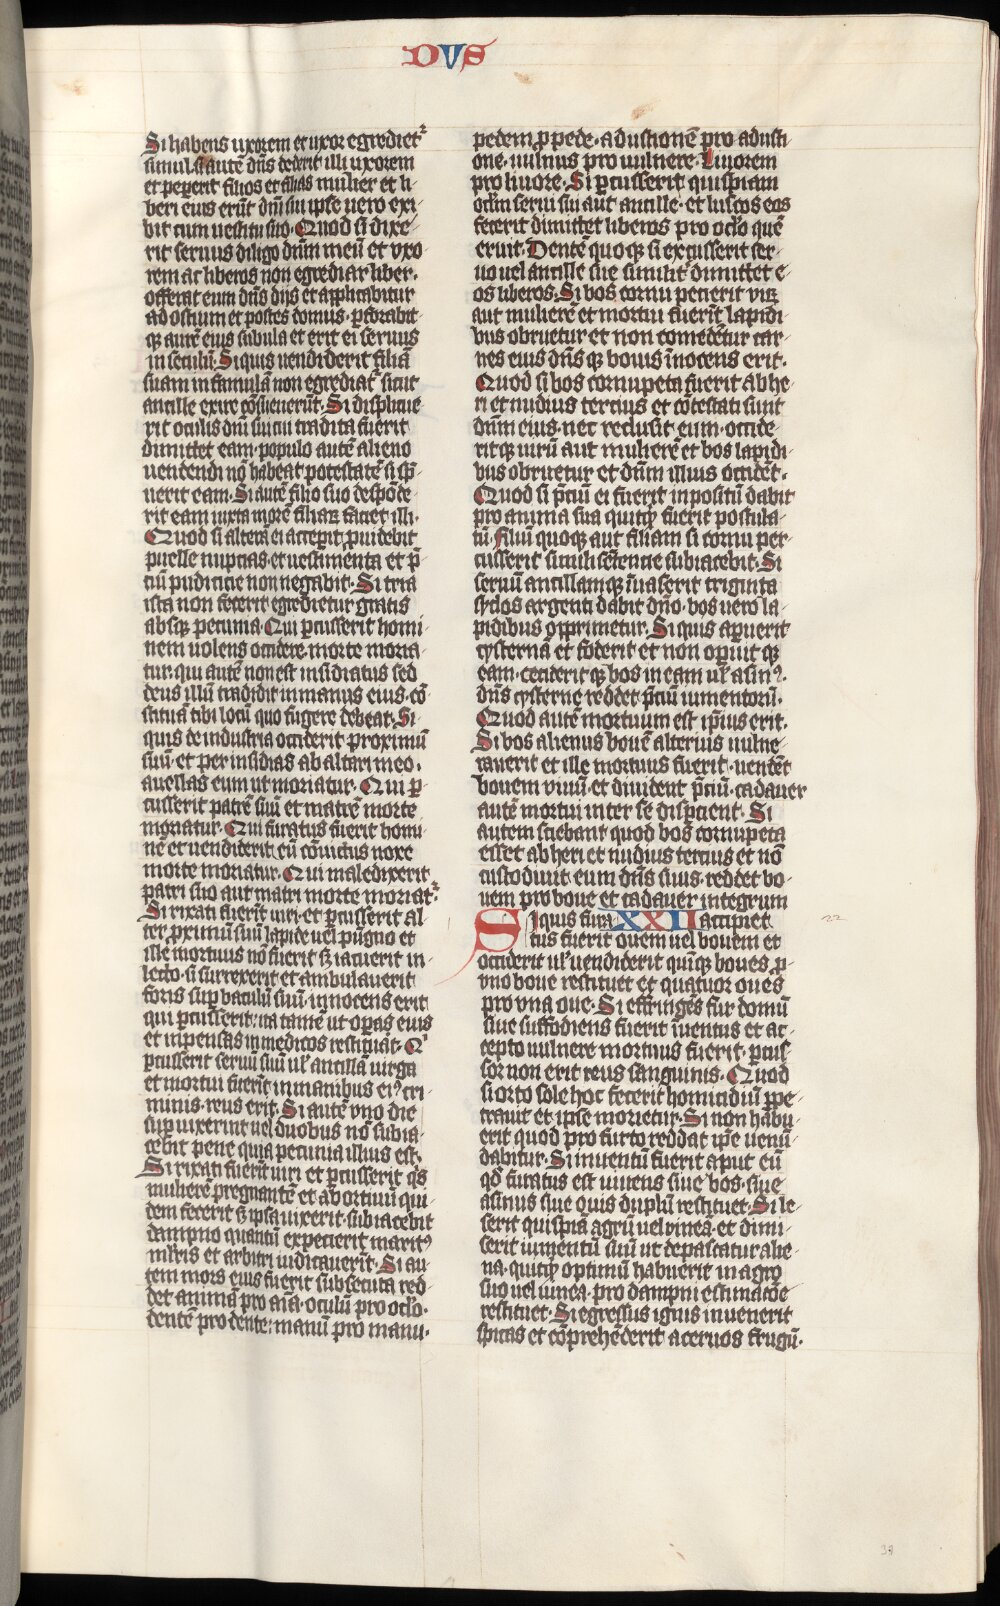 DVS
Si habens uxorem et uxor egrediet᷑
simul. si autē dn̄s dederit illi uxorem
et peꝑerit filios et filias mulier et li-
beri eius erūt dn̄i sui ipse uero exi-
bit cum uestitu suo. Quod si dixe-
rit seruus diligo dn̄m meū et vxo
rem ac liberos non egrediar liber.
offerat eum dn̄s diis et applicabitur
ad ostium et postes domus. ꝑforabit-
qꝫ aurē eius subula et erit ei seruus
in seculū. Si quis uendiderit filiā
suam in famulā non egrediat᷑ sicut
ancille exire cōsueuerūt. Si displicue-
rit oculis dn̄i sui cui tradita fuerit
dimittet eam. populo autē alieno
uendendi nō habeat potestatē si sp̄-
uerit eam. Si autē filio suo despōde-
rit eam iuxta morē filiaꝝ faciet illi.
Quod si alterā ei acceperit ꝓuidebit
puelle nuptias. et uestimenta et p̄-
ciū pudicicie non negabit. Si tria
ista non fecerit egredietur gratis
absqꝫ pecunia. Qui ꝑcusserit homi-
nem uolens occidere. morte moria-
tur. qui autē non est insidiatus sed
deus illū tradidit in manus eius. cō-
stituā tibi locū quo fugere debeat. Si
quis de industria occiderit proximū
suū et per insidias ab altari meo.
auellas eum ut moriatur. Qui ꝑ-
cusserit patrē suū et matrē morte
moriatur. Qui furatus fuerit homi-
nē et uendiderit eū cōuictus noxe
morte moriatur. Qui maledixerit
patri suo aut matri morte moriat᷑.
Si rixati fuerit uiri et ꝑcusserit al
ter ꝓximū suū lapide uel pugno et
ille mortuus nō fuerit sꝫ iacuerit in-
lecto. si surrexerit et ambulauerit
foris suꝑ baculū suū innocens erit
qui ꝑcusserit. ita tamē ut oꝑas eius
et inpensas in medicos restituat. Qⁱ
ꝑcusserit seruū suū ul᷑ ancillā uirga
et mortui fuerit in manibus eiꝰ cri-
minis. reus erit. Si autē vno die
suꝑuixerint uel duobus nō subia-
cebit pene quia pecunia illius est.
Si rixati fuerit uiri et ꝑcusserit qⁱs
mulierē pregnantē et abortiuū qui-
dem fecerit sꝫ ipsa uixerit. subiacebit
dampno quantū expecierit maritꝰ
mlīeris et arbitri iudicauerīt. Si au-
tem mors eius fuerit subsecuta red-
det animā pro aīa. oculū pro oclo.
dentē pro dente. manū pro manu.
pedem ꝓ pede. adustionē pro adusti
one. uulnus pro uulnere. Liuorem
pro liuore. Si ꝑcusserit quispiam
oclm serui sui aut ancille. et luscos eos
fecerit dimittet liberos pro oclo quē
eruit. Dentē quoqꝫ si excusserit ser-
uo uel ancille sue similit᷑ dimittet e-
os liberos. Si bos cornu pecierit virū
aut mulierē et mortui fuerit lapidi-
bus obruetur et non comedētur car-
nes eius dn̄s qꝫ bouis īnocens erit.
Quod si bos cornupeta fuerit ab he-
ri et nudius tercius et cōtestati sunt
dn̄m eius. nec reclusit eum. occide-
ritqꝫ uirū aut mulierē et bos lapidi
bus obruetur et dn̄m illius occidēt.
Quod si p̄ciū ei fuerit inpositū dabit
pro anima sua quitqͥꝫ fuerit postula-
tū. filiū quoqꝫ aut filiam si cornu per
cusserit simili sētencie subiacebit. Si
seruū ancillamqꝫ īuaserit triginta
syclos argenti dabit dn̄o. bos uero la-
pidibus opprimetur. Si quis aꝑuerit
cysternā et foderit et non oꝑuit qꝫ
eam. cecideritqꝫ bos in eam ul᷑ asinꝰ.
dn̄s cysterne reddet p̄ciū iumentorū.
Quod autē mortuum est ip̄ius erit.
Si bos alienus bouē alterius uulne-
rauerit et ille mortuus fuerit. uendēt
bouem viuū. et diuident p̄ciū. cadauer
autē mortui inter se disꝑcient. Si
autem sciebant quod bos cornupeta
esset ab heri et nudius tercius et nō
custodiuit eum dn̄s suus. reddet bo-
uem pro boue et cadauer integrum
Si quis fura XXII accipiet 22
tus fuerit ouem uel bouem et
occiderit ul᷑ uendiderit quīqꝫ boues ꝓ-
vno boue restituet et quatuor oues
pro vna oue. Si effringēs fur domū
siue suffodiens fuerit īuentus et ac-
cepto uulnere mortuus fuerit. ꝑcus-
sor non erit reus sanguinis. Quod
si orto sole hoc fecerit homicidiū ꝑpe-
trauit et ipse morietur. Si non habu-
erit quod pro furto reddat ip̄e uenū-
dabitur. Si inuentū fuerit aput eū
qd̄ furatus est viuens siue bos. siue
asinus siue ouis duplū restituet. Si le-
serit quispiā agrū uel vineā. et dimi-
serit iumentū suū ut depascatur alie-
na. quitqͥꝫ optimū habuerit in agro
suo uel uinea. pro dampni estimacōe
restituet. Si egressus ignis inuenerit
spicas et cōprehēderit aceruos frugū.